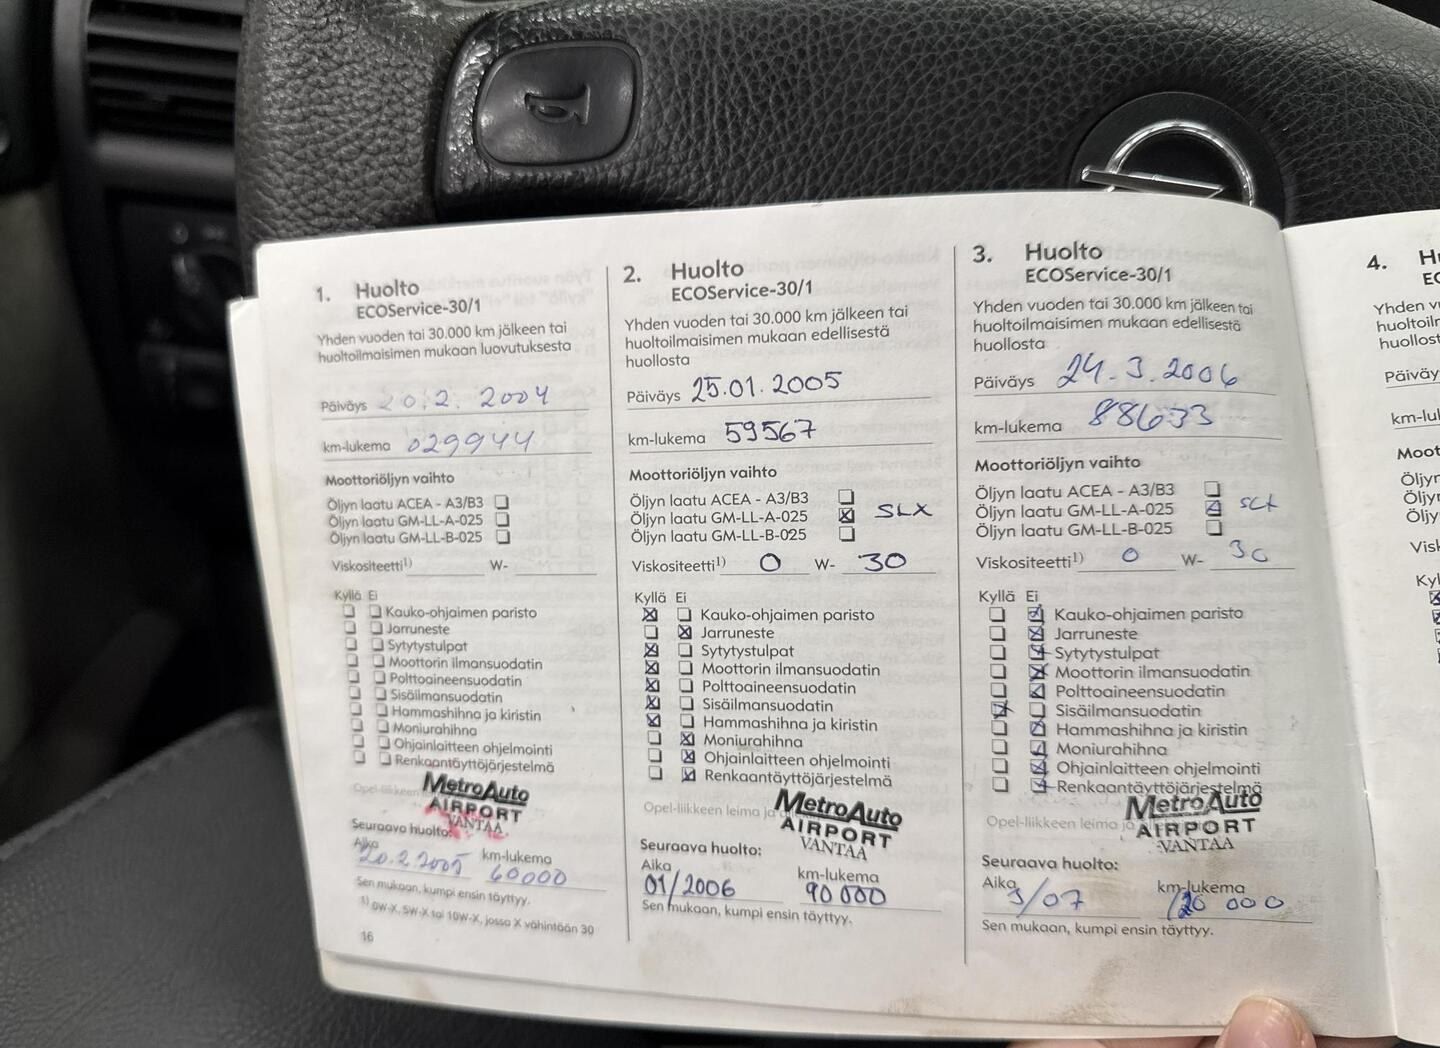 1. Huolto
ECOService-30/1
Yhden vuoden tai 30.000 km jälkeen tai
huoltoilmaisimen mukaan luovutuksesta
Päiväys 20.2. 2004
km-lukema 029944
Moottoriöljyn vaihto
Öljyn laatu ACEA - A3/B3
Öljyn laatu GM-LL-A-025
Öljyn laatu GM-LL-B-025
Viskositeetti1) W-
Kyllä Ei
Kauko-ohjaimen paristo
Jarruneste
Sytytystulpat
Moottorin ilmansuodatin
Polttoaineensuodatin
Sisäilmansuodatin
Hammashihna ja kiristin
Moniurahihna
Ohjainlaitteen ohjelmointi
Renkaantäyttöjärjestelmä
Opel-liikkeen
MetroAuto
AIRPORT
VANTAA
Seuraava huolto:
Aika km-lukema
20.2.2005 60000
Sen mukaan, kumpi ensin täyttyy.
1) 0W-X, 5W-X tai 10W-X, jossa X vähintään 30
16
2. Huolto
ECOService-30/1
Yhden vuoden tai 30.000 km jälkeen tai
huoltoilmaisimen mukaan edellisestä
huollosta
Päiväys 25.01.2005
km-lukema 59567
Moottoriöljyn vaihto
Öljyn laatu ACEA - A3/B3
Öljyn laatu GM-LL-A-025 SLX
Öljyn laatu GM-LL-B-025
Viskositeetti1) 0 W- 30
Kyllä Ei
Kauko-ohjaimen paristo
Jarruneste
Sytytystulpat
Moottorin ilmansuodatin
Polttoaineensuodatin
Sisäilmansuodatin
Hammashihna ja kiristin
Moniurahihna
Ohjainlaitteen ohjelmointi
Renkaantäyttöjärjestelmä
Opel-liikkeen leima ja
MetroAuto
AIRPORT
VANTAA
Seuraava huolto:
Aika km-lukema
01/2006 90 000
Sen mukaan, kumpi ensin täyttyy.
3. Huolto
ECOService-30/1
Yhden vuoden tai 30.000 km jälkeen tai
huoltoilmaisimen mukaan edellisestä
huollosta
Päiväys 24.3.2006
km-lukema 88633
Moottoriöljyn vaihto
Öljyn laatu ACEA - A3/B3
Öljyn laatu GM-LL-A-025
Öljyn laatu GM-LL-B-025
Viskositeetti1) 0 W- 30
Kyllä Ei
Kauko-ohjaimen paristo
Jarruneste
Sytytystulpat
Moottorin ilmansuodatin
Polttoaineensuodatin
Sisäilmansuodatin
Hammashihna ja kiristin
Moniurahihna
Ohjainlaitteen ohjelmointi
Renkaantäyttöjärjestelmä
Opel-liikkeen leima ja
MetroAuto
AIRPORT
VANTAA
Seuraava huolto:
Aika km-lukema
3/07 120 000
Sen mukaan, kumpi ensin täyttyy.
4.